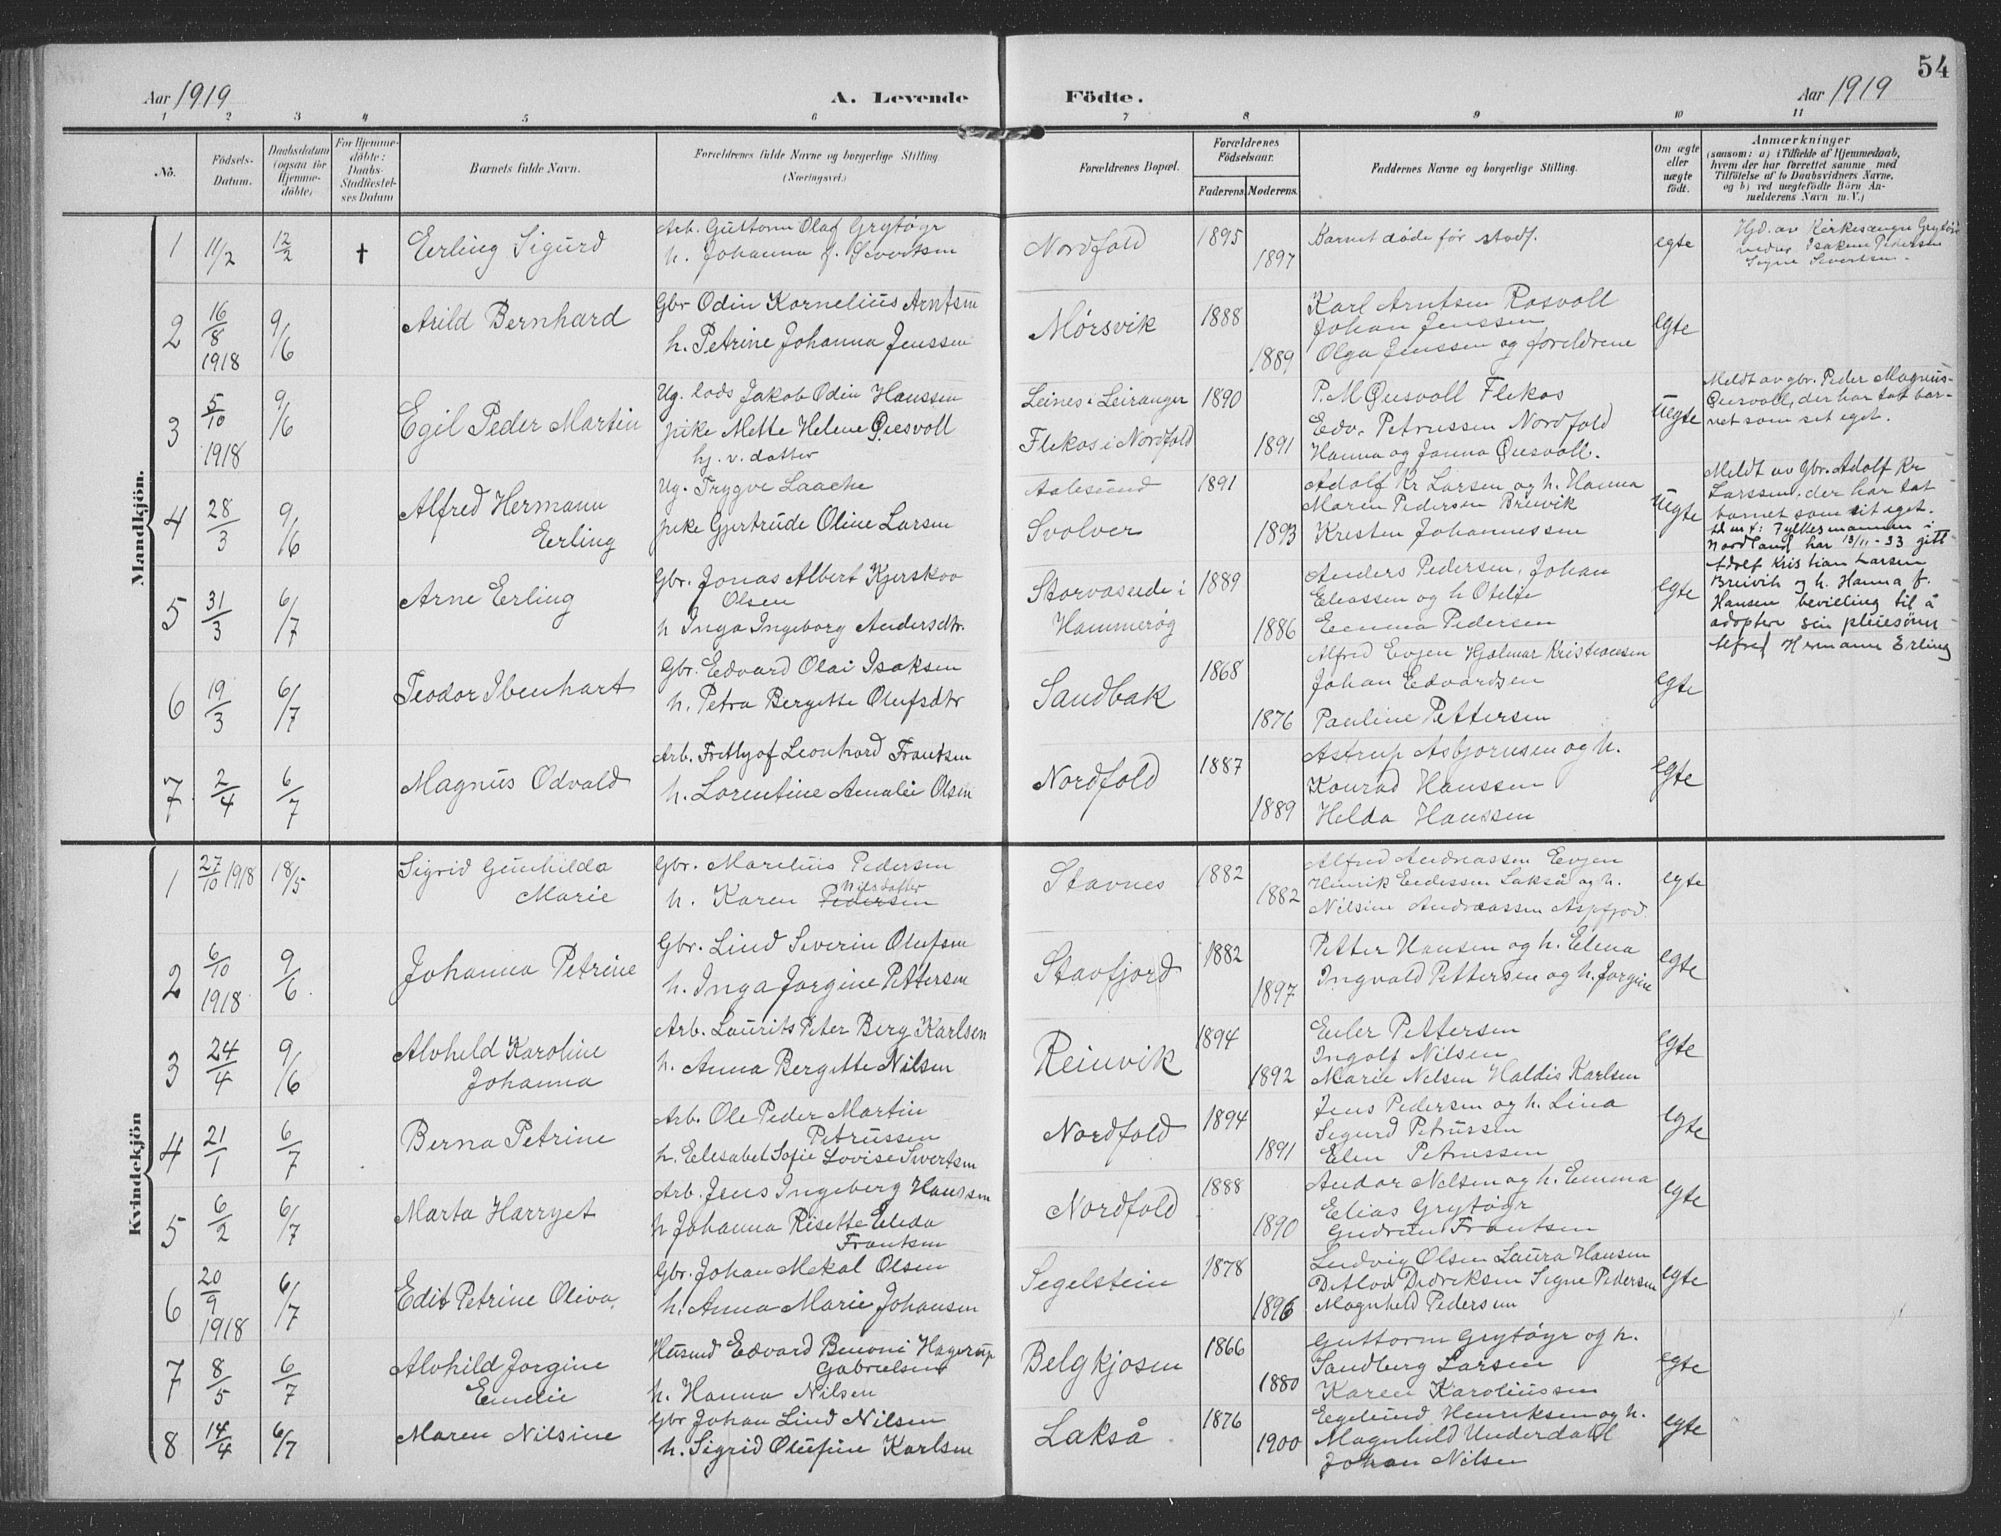 54
Aar 1919 A. Levende Födte. Aar 1919
1 2 3 4 5 6 7 8 9 10 11
No. Födsels-Datum. Daabsdatum (ogsaa for Hjemmedöbte) For Hjemmedöbte: Daabs-Stadfæstelses Datum Barnets fulde Navn. Forældrenes fulde Navne og borgerlige Stilling. (Næringsvei.) Forældrenes Bopæl. Forældrenes Födselsaar. Faderens. Moderens. Faddernes Navne og borgerlige Stilling. Om ægte eller uægte födt. Anmærkninger
(saasom: a) i Tilfælde af Hjemmedaab, hvem der har forrettet samme med Tilföielse af to Daabsvidners Navne, og b) ved uægtefödte Börn Anmelderens Navn m. V.)
Mandkjön.
1 11/2 12/2 † Erling Sigurd
Arb. Guttorm Olaf Grytøyr
h. Johanna f. Sivertsen
Nordfold 1895 1897
Barnet døde før stadf.
egte
Hjd. av Kirkesanger Grytøyr
vidner Isakum Pedersen
Signe Sivertsen.
2 16/8 1918 9/6 Arild Bernhard
Gbr Odin Kornelius Arntsen
h. Petrine Johanna Jenssen
Mørsvik 1888 1889
Karl Arntsen Rosvoll
Johan Jenssen
Olga Jenssen og foreldrene
egte
3 5/10 1918 9/6 Egil Peder Martin
Ug. lods Jakob Odin Hanssen
pike Mette Helene Quesvoll
hj. v. datter
Leines i Leiranger
Flekos i Nordfold
1890 1891
P. M Quesvoll Flekos
Edv. Petrussen Nordfold
Hanna og Janna Quesvoll.
uegte
Meldt av gbr. Peder Magnus-
Quesvoll, der har tat bar-
net som sit eget.
4 28/3 9/6 Alfred Hermann
Erling
Ug. Trygve Laache
pike Gjertrude Oline Larsen
Aalesund
Svolver
1891 1893
Adolf Kr Larsen og h. Hanna
Maren Pedersen Breivik
Kresten Johannessen
uegte
Meldt av Gbr. Adolf Kr
Larssen, der har tat
barnet som sit eget.
Fylkesmannen i
Nordland har 13/11-33 gitt
Adolf Kristian Larsen
Breivik og h. Hanna f.
Hansen bevilling til å
adoptere sin pleiesønn
Alfred Hermann Erling
5 31/3 6/7 Arne Erling
Gbr. Jonas Albert Kjerskov
Olsen
h Inga Ingeborg Andersdtr.
Storvasende i
Hammerøg
1889 1886
Anders Pedersen, Johan
Eliassen og h Otelie
Emma Pedersen
egte
6 19/3 6/7 Teodor Ibenhart
Gbr. Edvard Olai Isaksen
h. Petra Bergitte Olufsdtr
Sandbak 1868 1876
Alfred Evjen Hjalmar Kristiansen
Johan Edvardsen
Pauline Pettersen
egte
7 2/4 6/7 Magnus Odvald
Arb. Frithjof Leonhard Frantsen
h. Lorentine Amalie Olsen
Nordfold 1887 1889
Astrup Asbjørnsen og h.
Konrad Hanssen
Helda Hanssen
egte
Kvindekjön
1 27/10 1918 18/5 Sigrid Gunhilda
Marie
Gbr. Marelius Pedersen
h. Karen Pedersen Nilsdatter
Stavnes 1882 1882
Alfred Andreassen Evjen
Henrik Endressen Lakså og h.
Nilsine Andreassen Aspfjord.
egte
2 6/10 1918 9/6. Johanna Petrine
Gbr. Lind Severin Olufsen
h. Inga Jorgine Pettersen
Stavfjord 1882 1897
Petter Hansen og h. Elena
Ingvald Pettersen og h. Jorgine
egte
3 24/4 9/6 Alvhild Karoline
Johanna
Arb. Laurits Peter Berg Karlsen
h. Anna Bergitte Nilsen
Reinvik 1894 1892
Euler Pettersen
Ingolf Nilsen
Marie Nilsen Haldis Karlsen
egte
4 21/1 6/7 Berna Petrine
Arb. Ole Peder Martin
Petrussen
h. Elesabet Sofie Lovise Sivertsen
Nordfold 1894 1891
Jens Pedersen og h. Lina
Sigurd Petrussen
Elen Petrussen
egte
5 6/2 6/7 Marta Harryet
Arb. Jens Ingeberg Hanssen
h Johanna Risette Elida
Frantsen
Nordfold 1888 1890
Andor Nilsen og h. Emma
Elias Grytøyr
Gudrun Frantsen
egte
6 20/9 1918 6/7 Edit Petrine Oliva,
Gbr. Johan Mekal Olsen
h. Anna Marie Johansen
Segelstein 1878 1896
Ludvig Olsen Laura Hansen
Ditlov Didriksen Signe Pedersen
Magnhild Pedersen
egte
7 8/5 6/7 Alvhild Jorgine
Emelie
Husmd Edvard Benoni Hagerup
Gabrielsen
h. Hanna Nilsen
Belgkjosen 1866 1880
Guttorm Grytøyr og h.
Sandberg Larsen
Karen Karoliussen
egte
8 14/4 6/7 Maren Nilsine
Gbr Johan Lind Nilsen
h. Sigrid Olufine Karlsen
Lakså 1876 1900
Egelund Henriksen og h.
Magnhild Underdahl
Johan Nilsen
egte